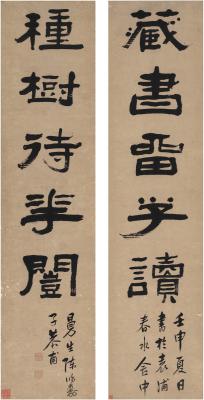 藏書畱子讀
壬申夏日
書於袁浦
春水舍中
種樹待華闓
曼生陳鴻壽
子恭甫